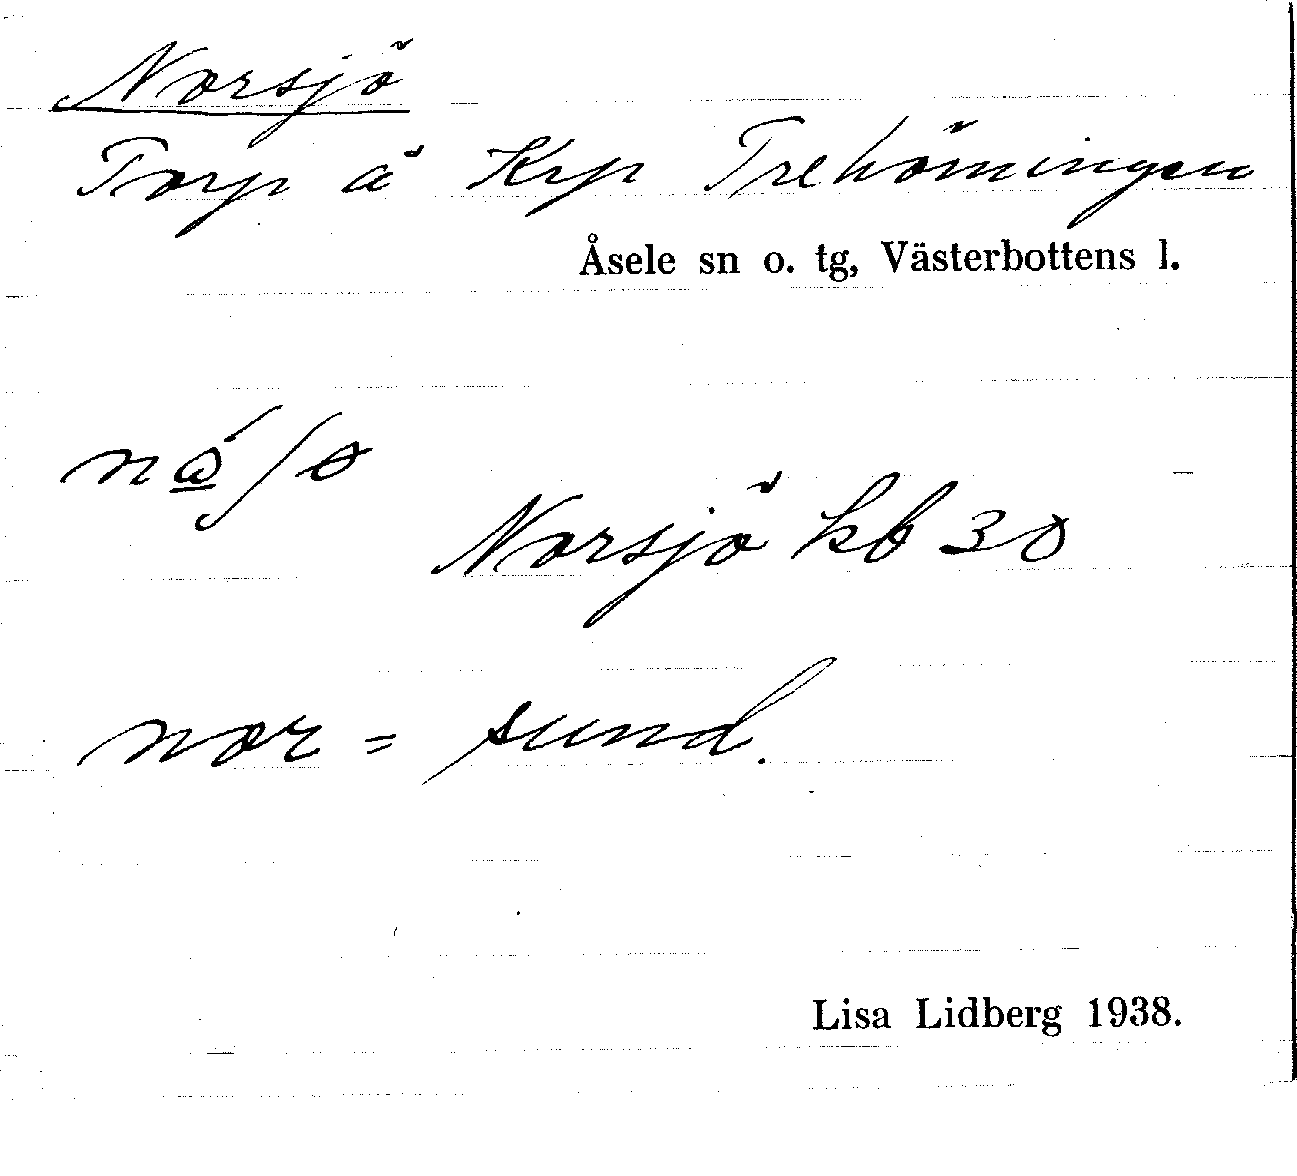 Norsjö
Torp å Krp Trehörningen
Åsele sn o. tg, Västerbottens l.
Norsjö kb 30
nor = sund.
Lisa Lidberg 1938.